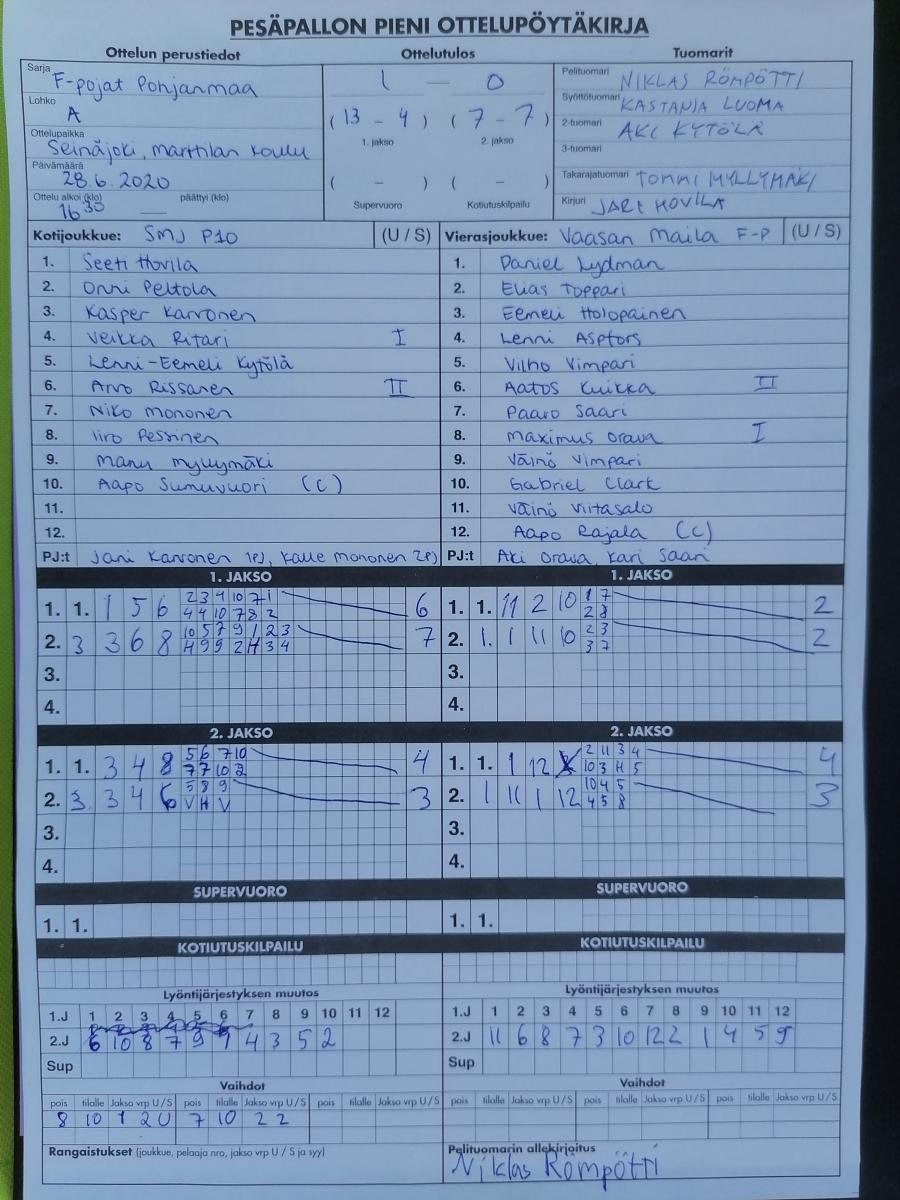 PESÄPALLON PIENI OTTELUPÖYTÄKIRJA
Ottelun perustiedot Ottelutulos Tuomarit
Sarja F-pojat Pohjanmaa
Lohko A
Ottelupaikka Seinäjoki, marttilan koulu
Päivämäärä 28.6.2020
Ottelu alkoi (klo) 16 30 päättyi (klo) —
1 — 0
( 13 - 4 ) ( 7 - 7 )
1. jakso 2. jakso
( - ) ( - )
Supervuoro Kotiutuskilpailu
Pelituomari NIKLAS RÖMPÖTTI
Syöttötuomari KASTANJA LUOMA
2-tuomari AKI KYTÖLÄ
3-tuomari
Takarajatuomari TOMMI MYLLYMÄKI
Kirjuri JARI HOVILA
Kotijoukkue: SMJ P10 (U / S)
1. Seeti Hovila
2. Onni Peltola
3. Kasper Karvonen
4. Veikka Ritari I
5. Lenni-Eemeli Kytölä
6. Arvo Rissanen II
7. Niko Mononen
8. Iiro Pessinen
9. Manu Myllymäki
10. Aapo Sumuvuori (C)
11.
12.
PJ:t Jani Karvonen 1PJ, Kalle Mononen 2PJ
Vierasjoukkue: Vaasan Maila F-P (U / S)
1. Daniel Lydman
2. Elias Toppari
3. Eemeli Holopainen
4. Lenni Aspfors
5. Vilho Vimpari
6. Aatos Kuikka II
7. Paavo Saari
8. Maximus Orava I
9. Väinö Vimpari
10. Gabriel Clark
11. Väinö Viitasalo
12. Aapo Rajala (C)
PJ:t Aki Orava, Kari Saari
1. JAKSO
1. 1. 1 5 6 2 3 9 10 7 1 6
4 4 10 7 8 2
2. 3 3 6 8 10 5 7 9 1 2 3 7
H 9 9 2 H 3 4
3.
4.
1. JAKSO
1. 1. 11 2 10 1 7 2
2 8
2. 1. 1 11 10 2 3 2
3 7
3.
4.
2. JAKSO
1. 1. 3 4 8 5 6 7 10 4
7 7 10 2
2. 3. 3 4 6 5 8 9 3
V H V
3.
4.
2. JAKSO
1. 1. 1 12 2 11 3 4 4
10 3 H 5
2. 1 11 1 12 10 4 5 3
4 5 8
3.
4.
SUPERVUORO
1. 1.
SUPERVUORO
1. 1.
KOTIUTUSKILPAILU
KOTIUTUSKILPAILU
Lyöntijärjestyksen muutos
1.J 1 2 3 4 5 6 7 8 9 10 11 12
2.J 6 10 8 7 9 1 4 3 5 2
Sup
Lyöntijärjestyksen muutos
1.J 1 2 3 4 5 6 7 8 9 10 11 12
2.J 11 6 8 7 3 10 12 2 1 4 5 9
Sup
Vaihdot
pois tilalle Jakso vrp U / S pois tilalle Jakso vrp U / S pois tilalle Jakso vrp U / S
8 10 1 2 U 7 10 2 2
Vaihdot
pois tilalle Jakso vrp U / S pois tilalle Jakso vrp U / S pois tilalle Jakso vrp U / S
Rangaistukset (joukkue, pelaaja nro, jakso vrp U / S ja syy)
Pelituomarin allekirjoitus
Niklas Römpötti